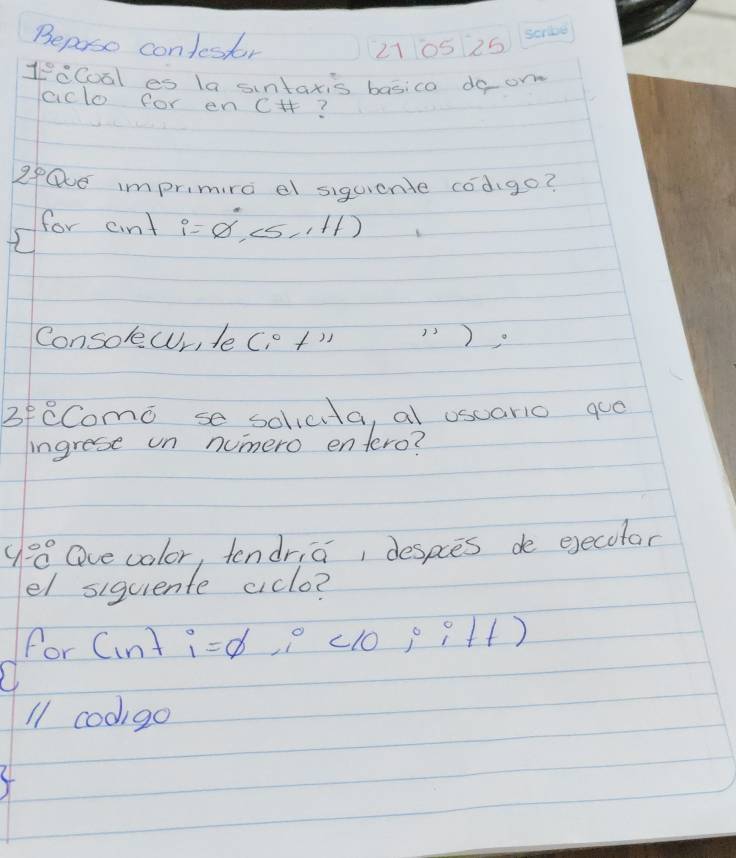 Reposo contestar 21 05 25 Scribe
1º ¿Cual es la sintaxis básica de un
ciclo for en C# ?
2º Qué imprimirá el siguiente código?
for (int i=0, <5, , ++)
{
Console.Write (i + " " ) ;
3º ¿Comó se solicita, al usuario que
ingrese un número entero?
4º ¿ Que valor, tendriá , despúes de ejecutar
el siguiente ciclo?
for (int i=0 , i <10 ; i++)
{
// codigo
}